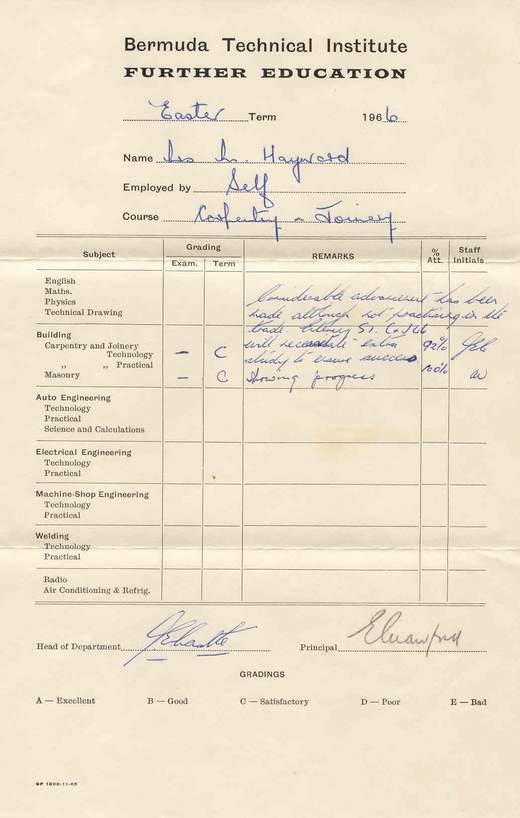 Bermuda Technical Institute
FURTHER EDUCATION
Easter Term 1966
Name Hayward
Employed by Self
Course Carpentry & Joinery
Subject Grading REMARKS % Att. Staff Initials
Exam. Term
English
Maths.
Physics
Technical Drawing
Considerable advancement has been
made although not practising in the
trade.
Building
Carpentry and Joinery
Technology — C will necessitate extra 92%
„ „ Practical study to ensure success
Masonry — C Showing progress 100%
Auto Engineering
Technology
Practical
Science and Calculations
Electrical Engineering
Technology
Practical
Machine-Shop Engineering
Technology
Practical
Welding
Technology
Practical
Radio
Air Conditioning & Refrig.
Head of Department Principal
GRADINGS
A — Excellent B — Good C — Satisfactory D — Poor E — Bad